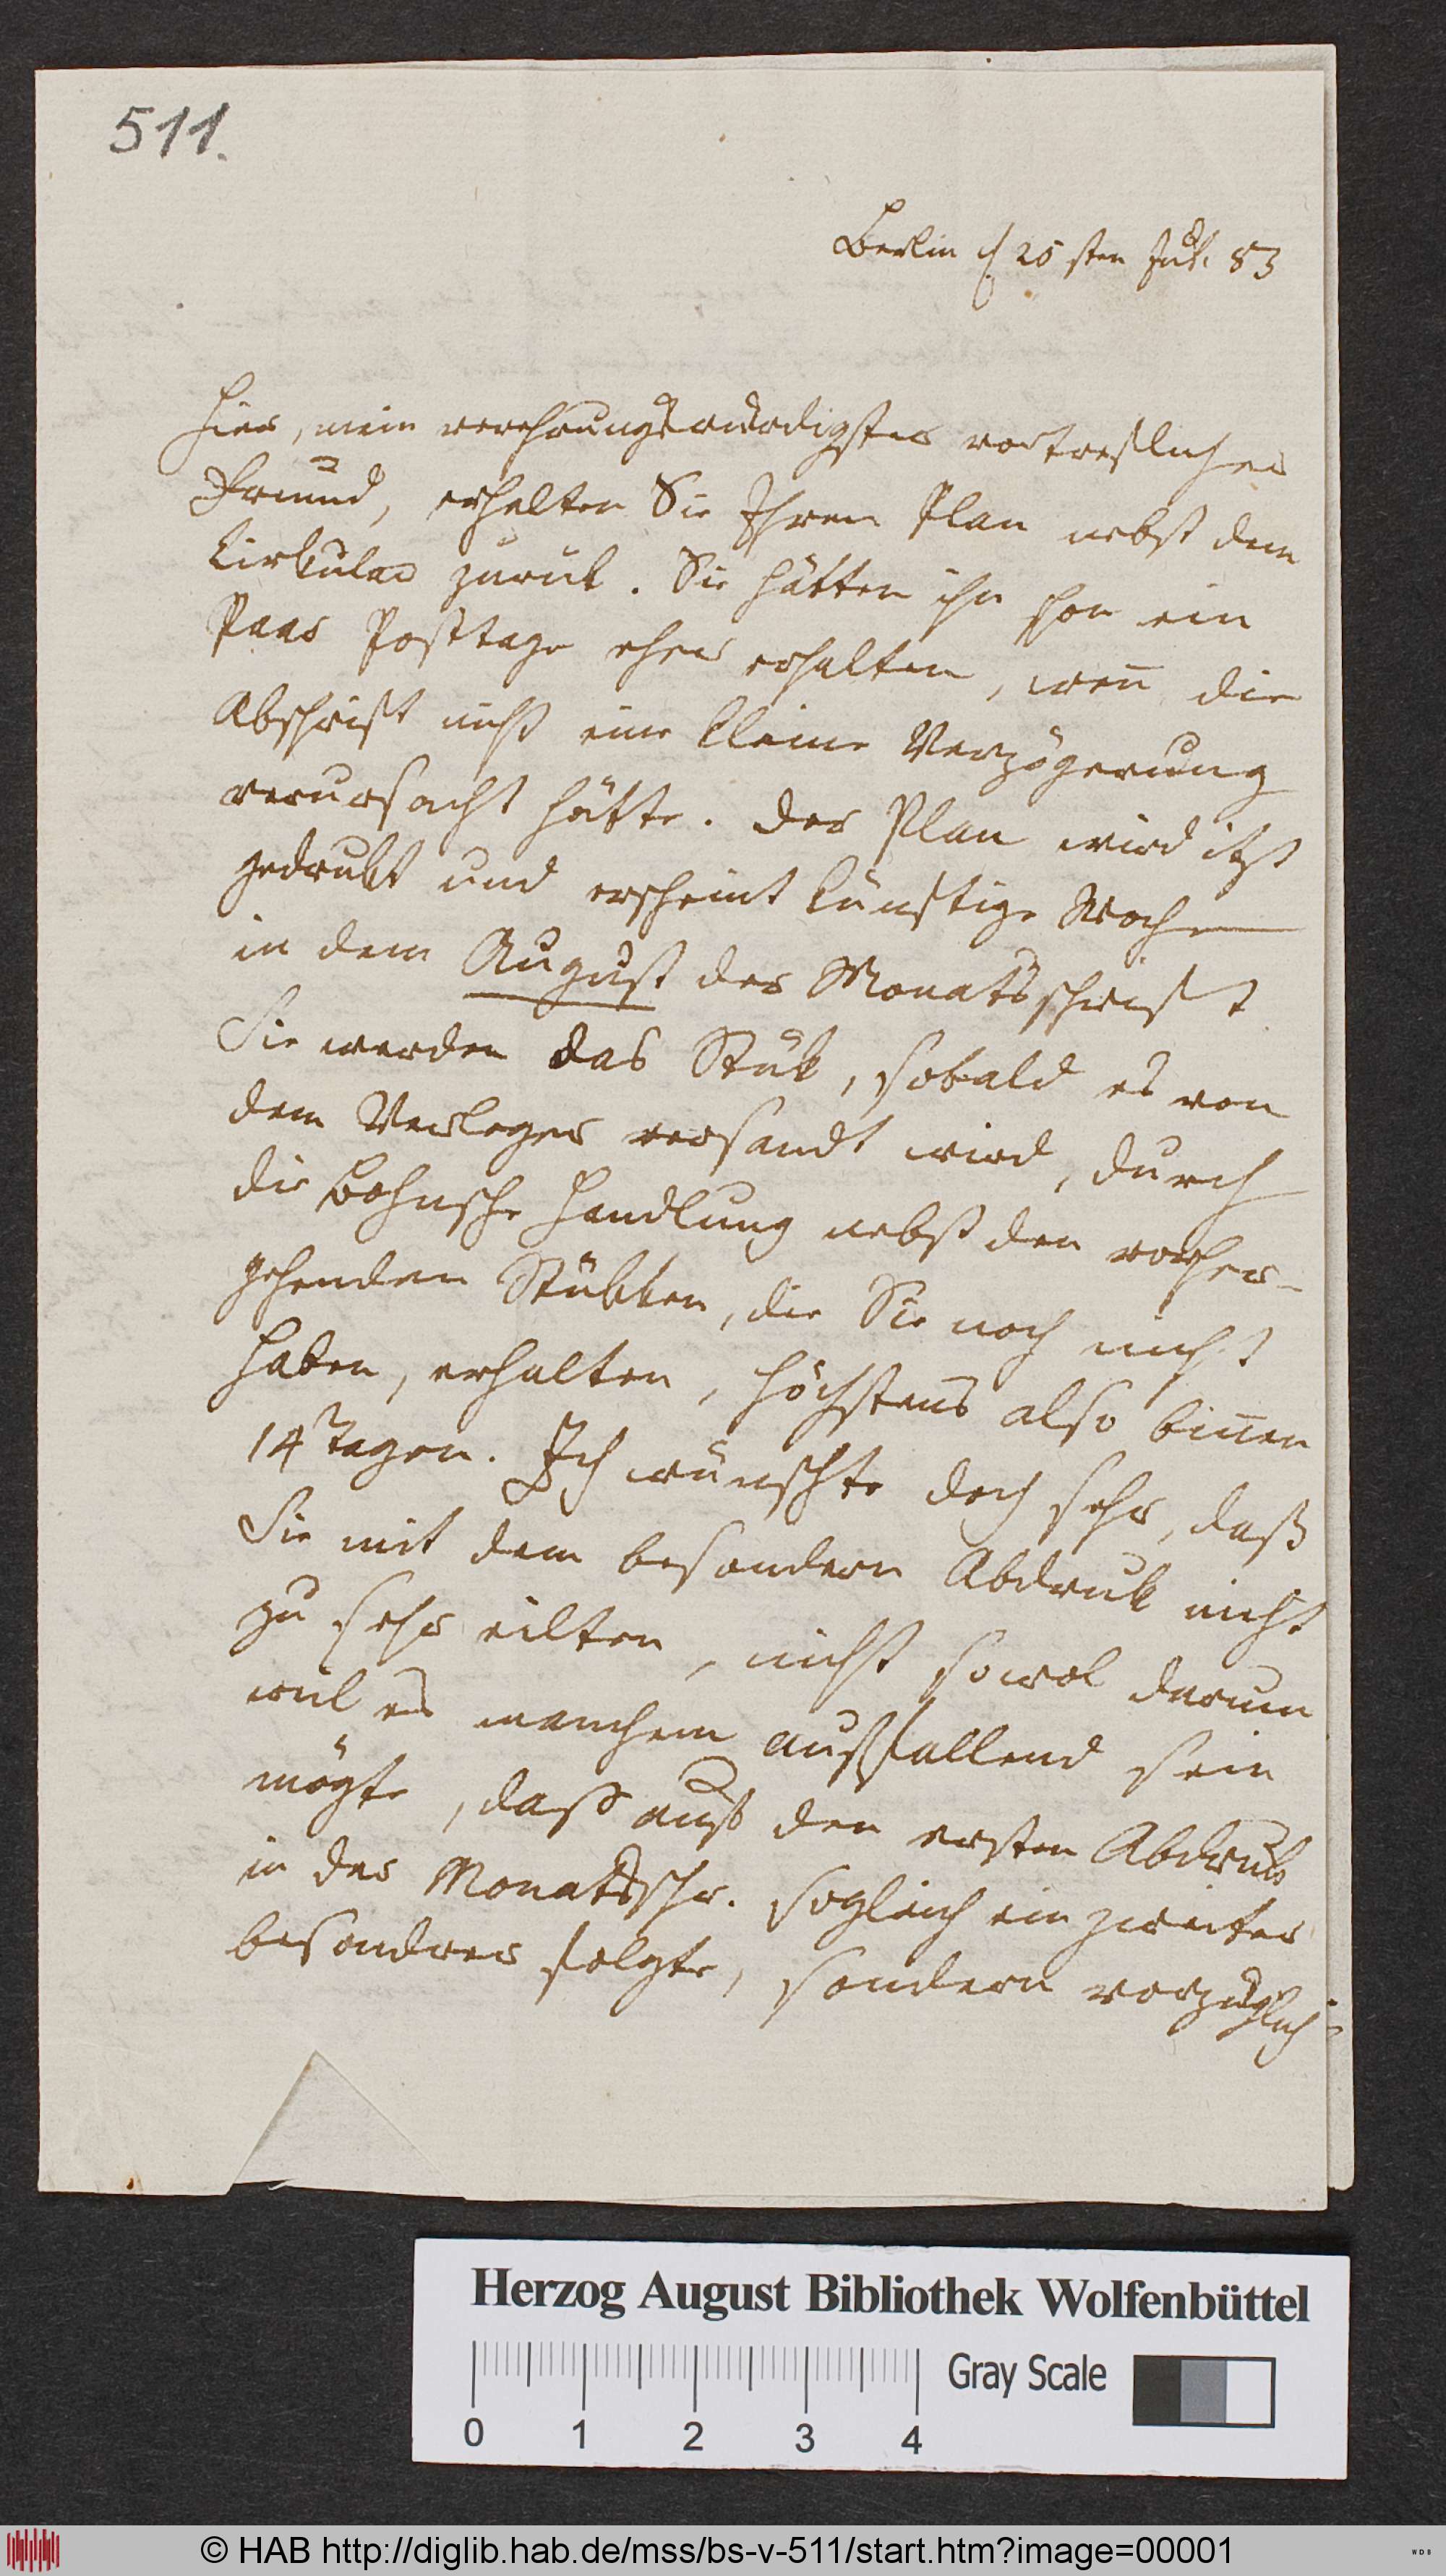 511.
Berlin d. 25sten Jul. 83
Hier, mein verehrungswürdigster vortreflicher
Freund, erhalten Sie Ihren Plan nebst dem
Cirkular zurük. Sie hätten ihn schon ein
Paar Posttage eher erhalten, weñ die
Abschrift nicht eine kleine Verzögerung
verursacht hätte. Der Plan wird itzt
gedrukt und erscheint künftige Woche
in dem August der Monatsschrift
Sie werden das Stük, sobald es von
dem Verleger versandt wird, durch
die Bohnsche Handlung nebst den vorher-
gehenden Stükken, die Sie noch nicht
haben, erhalten, höchstens also biñen
14 Tagen. Ich wünschte doch sehr, daß
Sie mit dem besondern Abdruk nicht
zu sehr eilten, nicht sowol darum
weil es manchem auffallend sein
mögte, daß auf den ersten Abdruk
in der Monatsschr. sogleich ein zweiter
besondrer folgte, sondern vorzüglich
Herzog August Bibliothek Wolfenbüttel
Gray Scale
0 1 2 3 4
© HAB http://diglib.hab.de/mss/bs-v-511/start.htm?image=00001
WDB